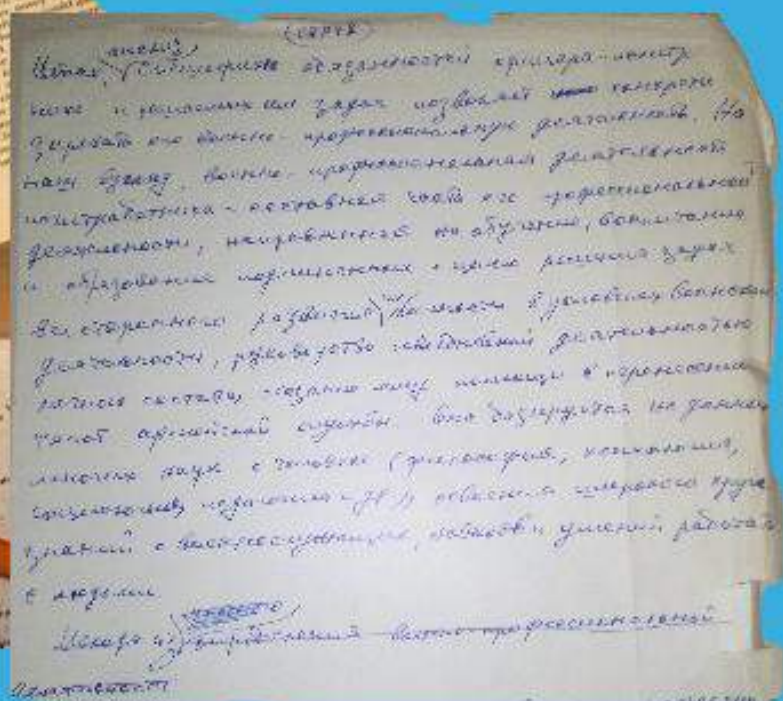 анализ
обязанностей офицера-
и решаемых им задач позволяет конкрети
зировать его военно-профессиональную деятельность. На
наш взгляд, военно-профессиональная деятельность
- составная часть его профессиональной
деятельности, направленная на обучение, воспитание
и образование подчиненных с целью решения задач
всестороннего развития личности в условиях воинской
деятельности, руководство служебной деятельностью
личного состава, оказание ему помощи в перенесении
тягот армейской службы. Она базируется на данных
многих наук о человеке (философия, психология,
социология, педагогика и др.), освоении широкого круга
знаний о военнослужащих, навыков и умений работать
с людьми.
Исходя из военно-профессиональной
деятельности